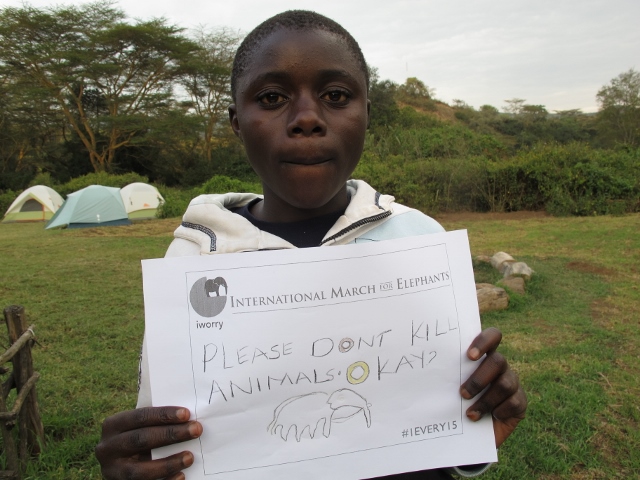 INTERNATIONAL MARCH FOR ELEPHANTS
iworry
PLEASE DONT KILL
ANIMALS. OKAY?
#1EVERY15